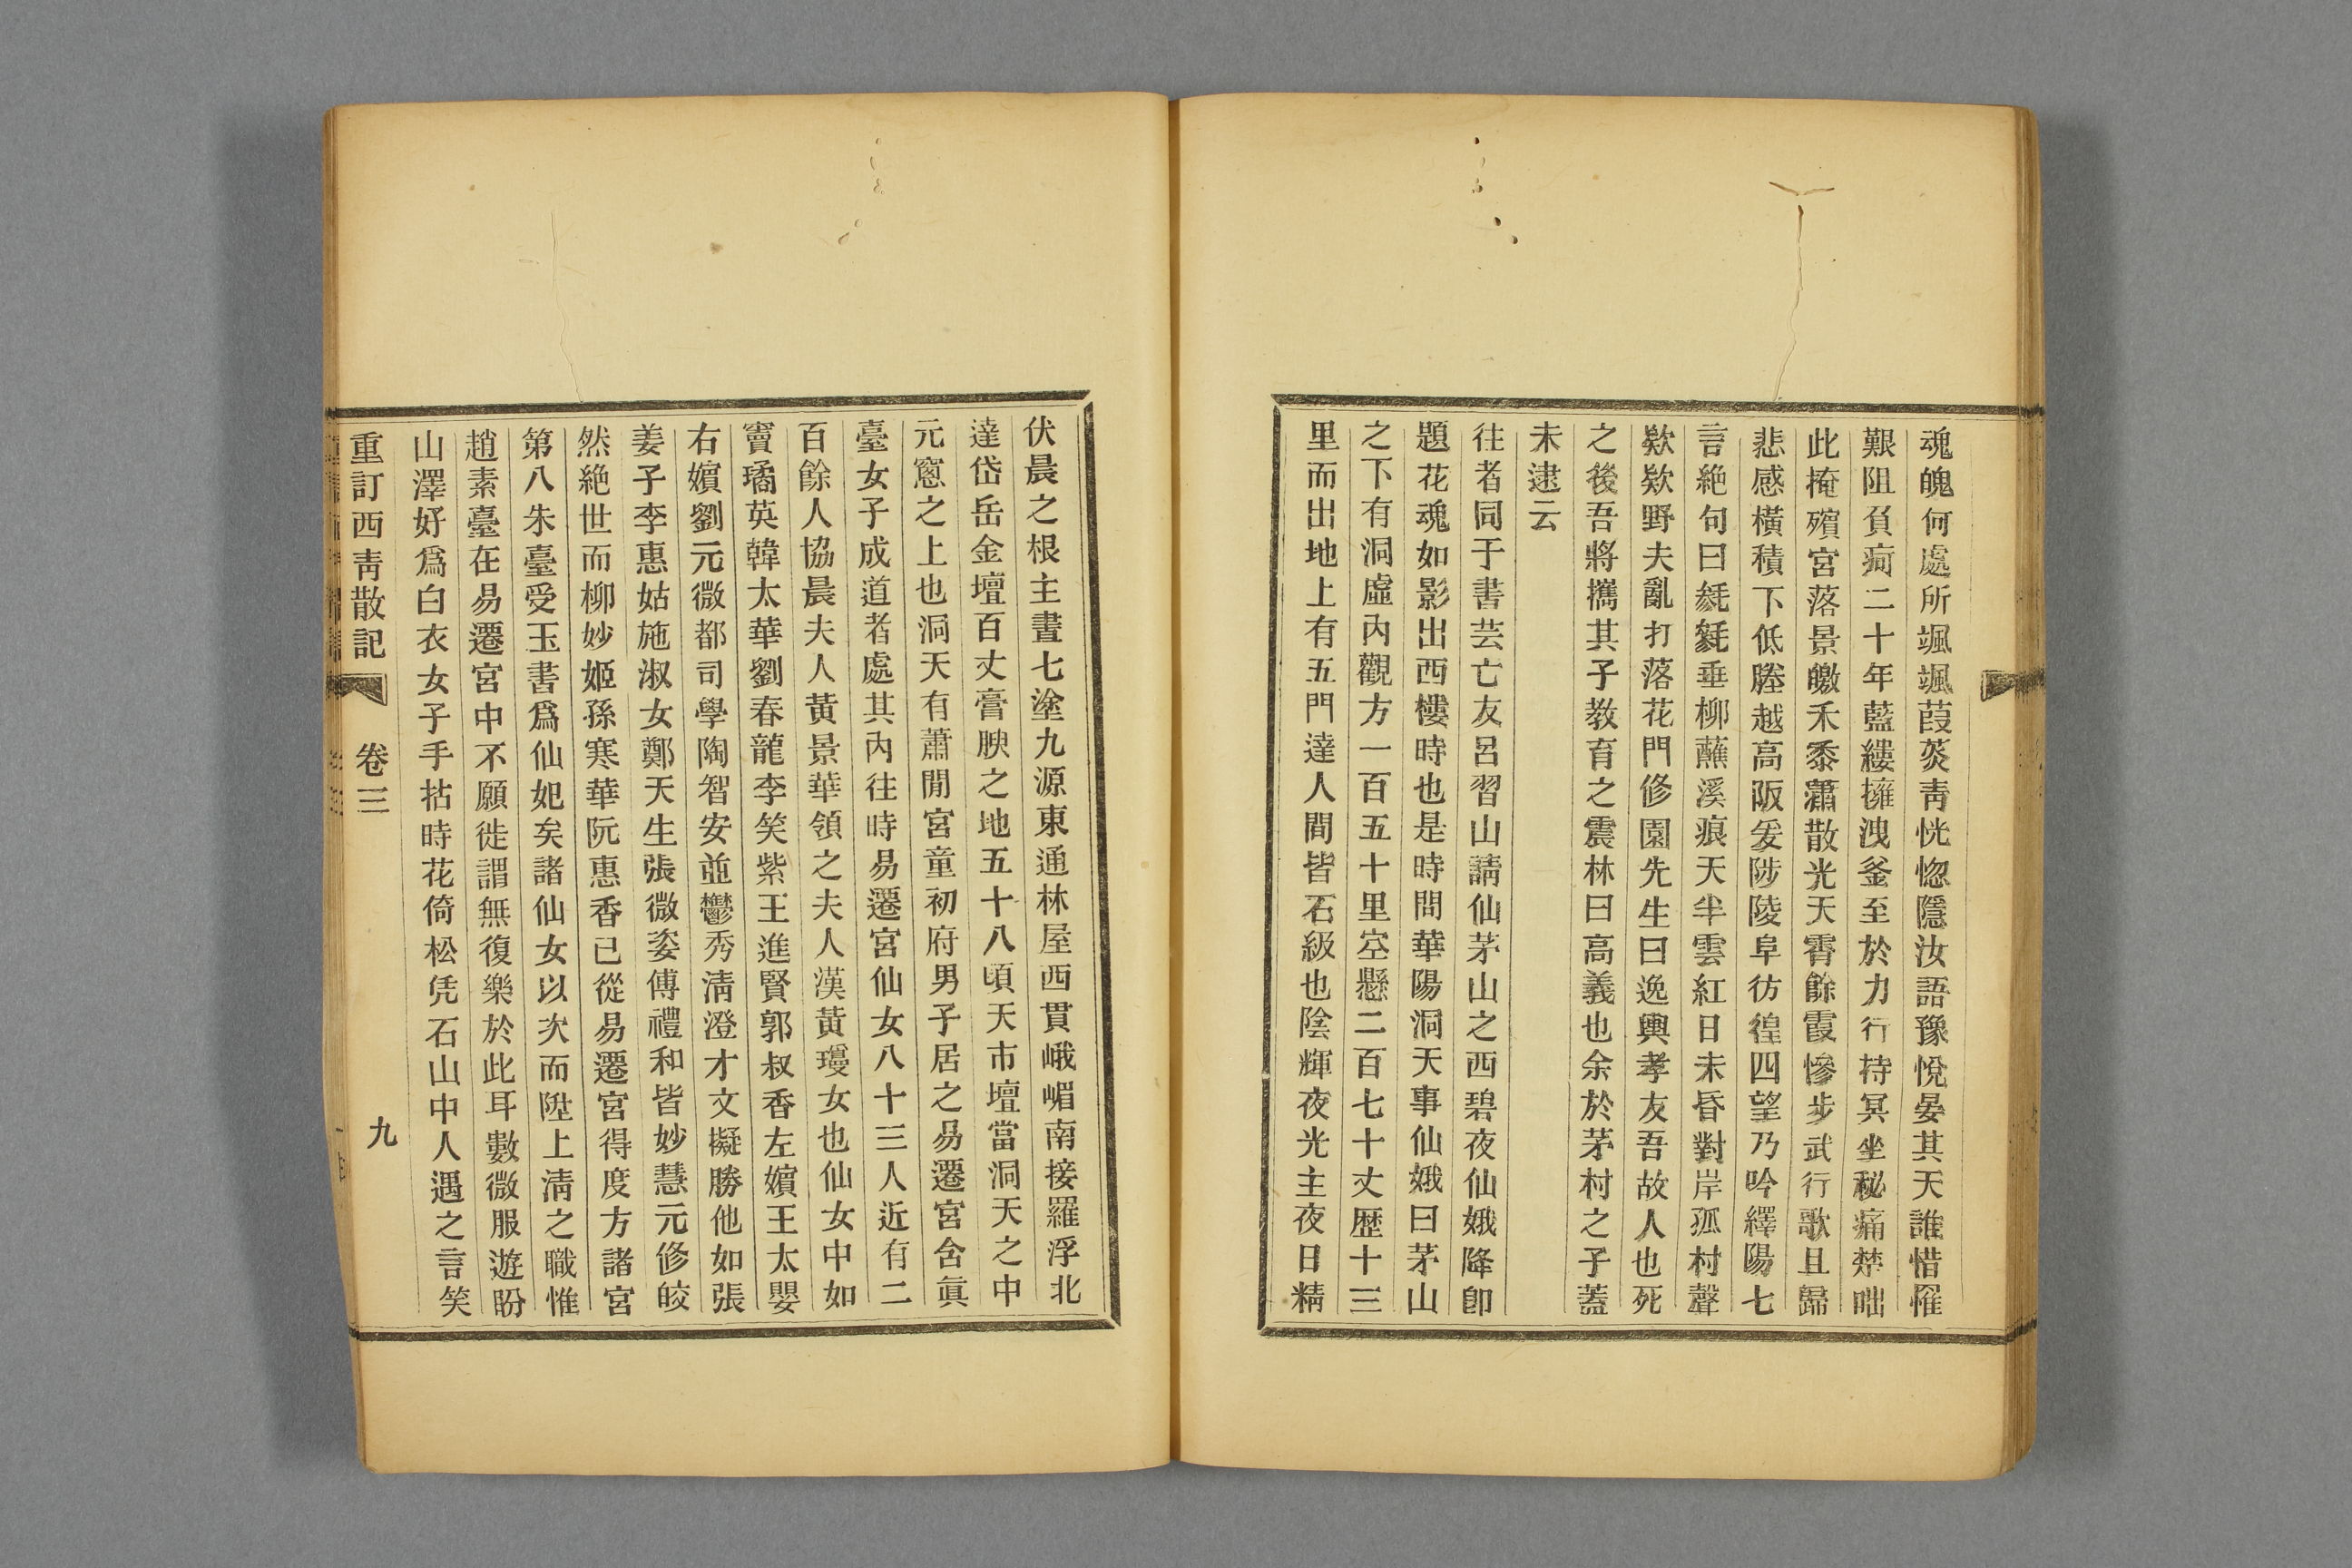 魂魄何處所颯颯葭菼靑恍惚隱汝語豫悅晏其天誰惜罹
艱阻負疴二十年藍縷擁洩釜至於力行持冥坐秘痛楚咄
此掩殯宮落景皦禾黍瀟散光天霄餘霞慘步武行歌且歸
悲感橫積下低塍越高阪爰陟陵阜彷徨四望乃吟繹陽七
言絶句曰毵毵垂柳蘸溪痕天半雲紅日未昏對岸孤村聲
欸欸野夫亂打落花門修園先生曰逸興孝友吾故人也死
之後吾將攜其子教育之震林曰高義也余於茅村之子蓋
未逮云
往者同于書芸亡友呂習山請仙茅山之西碧夜仙娥降卽
題花魂如影出西樓時也是時問華陽洞天事仙娥曰茅山
之下有洞虛內觀方一百五十里空懸二百七十丈歷十三
里而出地上有五門達人間皆石級也陰輝夜光主夜日精
伏晨之根主晝七塗九源東通林屋西貫峨嵋南接羅浮北
達岱岳金壇百丈膏腴之地五十八頃天市壇當洞天之中
元窻之上也洞天有蕭閒宮童初府男子居之易遷宮含眞
臺女子成道者處其內往時易遷宮仙女八十三人近有二
百餘人協晨夫人黃景華領之夫人漢黃瓊女也仙女中如
竇璚英韓太華劉春龍李笑紫王進賢郭叔香左嬪王太嬰
右嬪劉元微都司學陶智安並鬱秀淸澄才文擬勝他如張
姜子李惠姑施淑女鄭天生張微姿傅禮和皆妙慧元修皎
然絶世而柳妙姬孫寒華阮惠香已從易遷宮得度方諸宮
第八朱臺受玉書爲仙妃矣諸仙女以次而陞上淸之職惟
趙素臺在易遷宮中不願徙謂無復樂於此耳數微服遊盼
山澤好爲白衣女子手拈時花倚松凭石山中人遇之言笑
重訂西靑散記 卷三 九